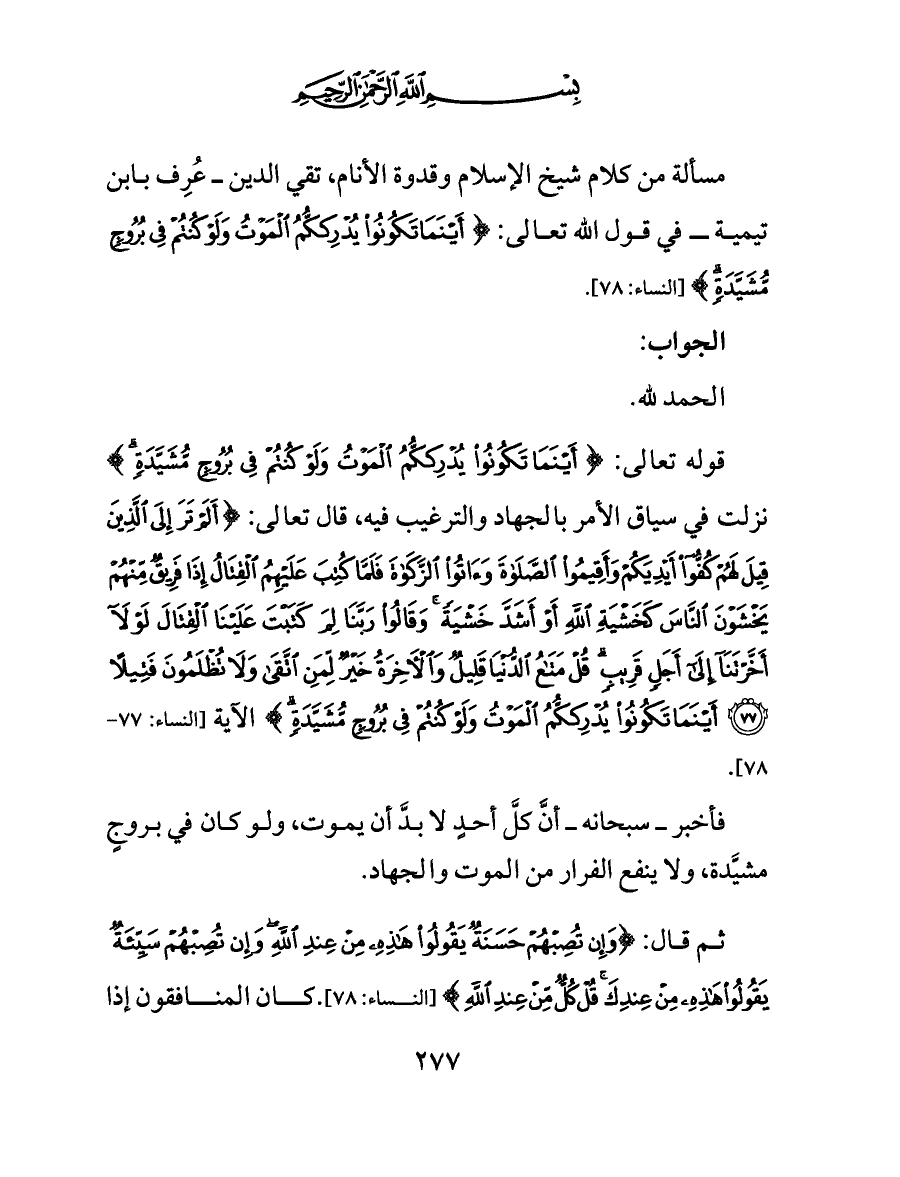 بِسْمِ اللَّهِ الرَّحْمَٰنِ الرَّحِيمِ
مسألة من كلام شيخ الإسلام وقدوة الأنام، تقي الدين ـ عُرِف بابن
تيمية ـ في قول الله تعالى: ﴿أَيْنَمَا تَكُونُوا۟ يُدْرِككُّمُ ٱلْمَوْتُ وَلَوْ كُنتُمْ فِى بُرُوجٍ
مُّشَيَّدَةٍ ۗ﴾ [النساء: ٧٨].
الجواب:
الحمد لله.
قوله تعالى: ﴿أَيْنَمَا تَكُونُوا۟ يُدْرِككُّمُ ٱلْمَوْتُ وَلَوْ كُنتُمْ فِى بُرُوجٍ مُّشَيَّدَةٍ ۗ﴾
نزلت في سياق الأمر بالجهاد والترغيب فيه، قال تعالى: ﴿أَلَمْ تَرَ إِلَى ٱلَّذِينَ
قِيلَ لَهُمْ كُفُّوٓا۟ أَيْدِيَكُمْ وَأَقِيمُوا۟ ٱلصَّلَوٰةَ وَءَاتُوا۟ ٱلزَّكَوٰةَ فَلَمَّا كُتِبَ عَلَيْهِمُ ٱلْقِتَالُ إِذَا فَرِيقٌ مِّنْهُمْ
يَخْشَوْنَ ٱلنَّاسَ كَخَشْيَةِ ٱللَّهِ أَوْ أَشَدَّ خَشْيَةً ۚ وَقَالُوا۟ رَبَّنَا لِمَ كَتَبْتَ عَلَيْنَا ٱلْقِتَالَ لَوْلَآ
أَخَّرْتَنَآ إِلَىٰٓ أَجَلٍ قَرِيبٍ ۗ قُلْ مَتَٰعُ ٱلدُّنْيَا قَلِيلٌ وَٱلْءَاخِرَةُ خَيْرٌ لِّمَنِ ٱتَّقَىٰ وَلَا تُظْلَمُونَ فَتِيلًا
﴿٧٧﴾ أَيْنَمَا تَكُونُوا۟ يُدْرِككُّمُ ٱلْمَوْتُ وَلَوْ كُنتُمْ فِى بُرُوجٍ مُّشَيَّدَةٍ ۗ﴾ الآية [النساء: ٧٧-
٧٨].
فأخبر ـ سبحانه ـ أنَّ كلَّ أحدٍ لا بدَّ أن يموت، ولو كان في بروجٍ
مشيَّدة، ولا ينفع الفرار من الموت والجهاد.
ثم قال: ﴿وَإِن تُصِبْهُمْ حَسَنَةٌ يَقُولُوا۟ هَٰذِهِۦ مِنْ عِندِ ٱللَّهِ ۖ وَإِن تُصِبْهُمْ سَيِّئَةٌ
يَقُولُوا۟ هَٰذِهِۦ مِنْ عِندِكَ ۚ قُلْ كُلٌّ مِّنْ عِندِ ٱللَّهِ﴾ [النساء: ٧٨]. كان المنافقون إذا
٢٧٧